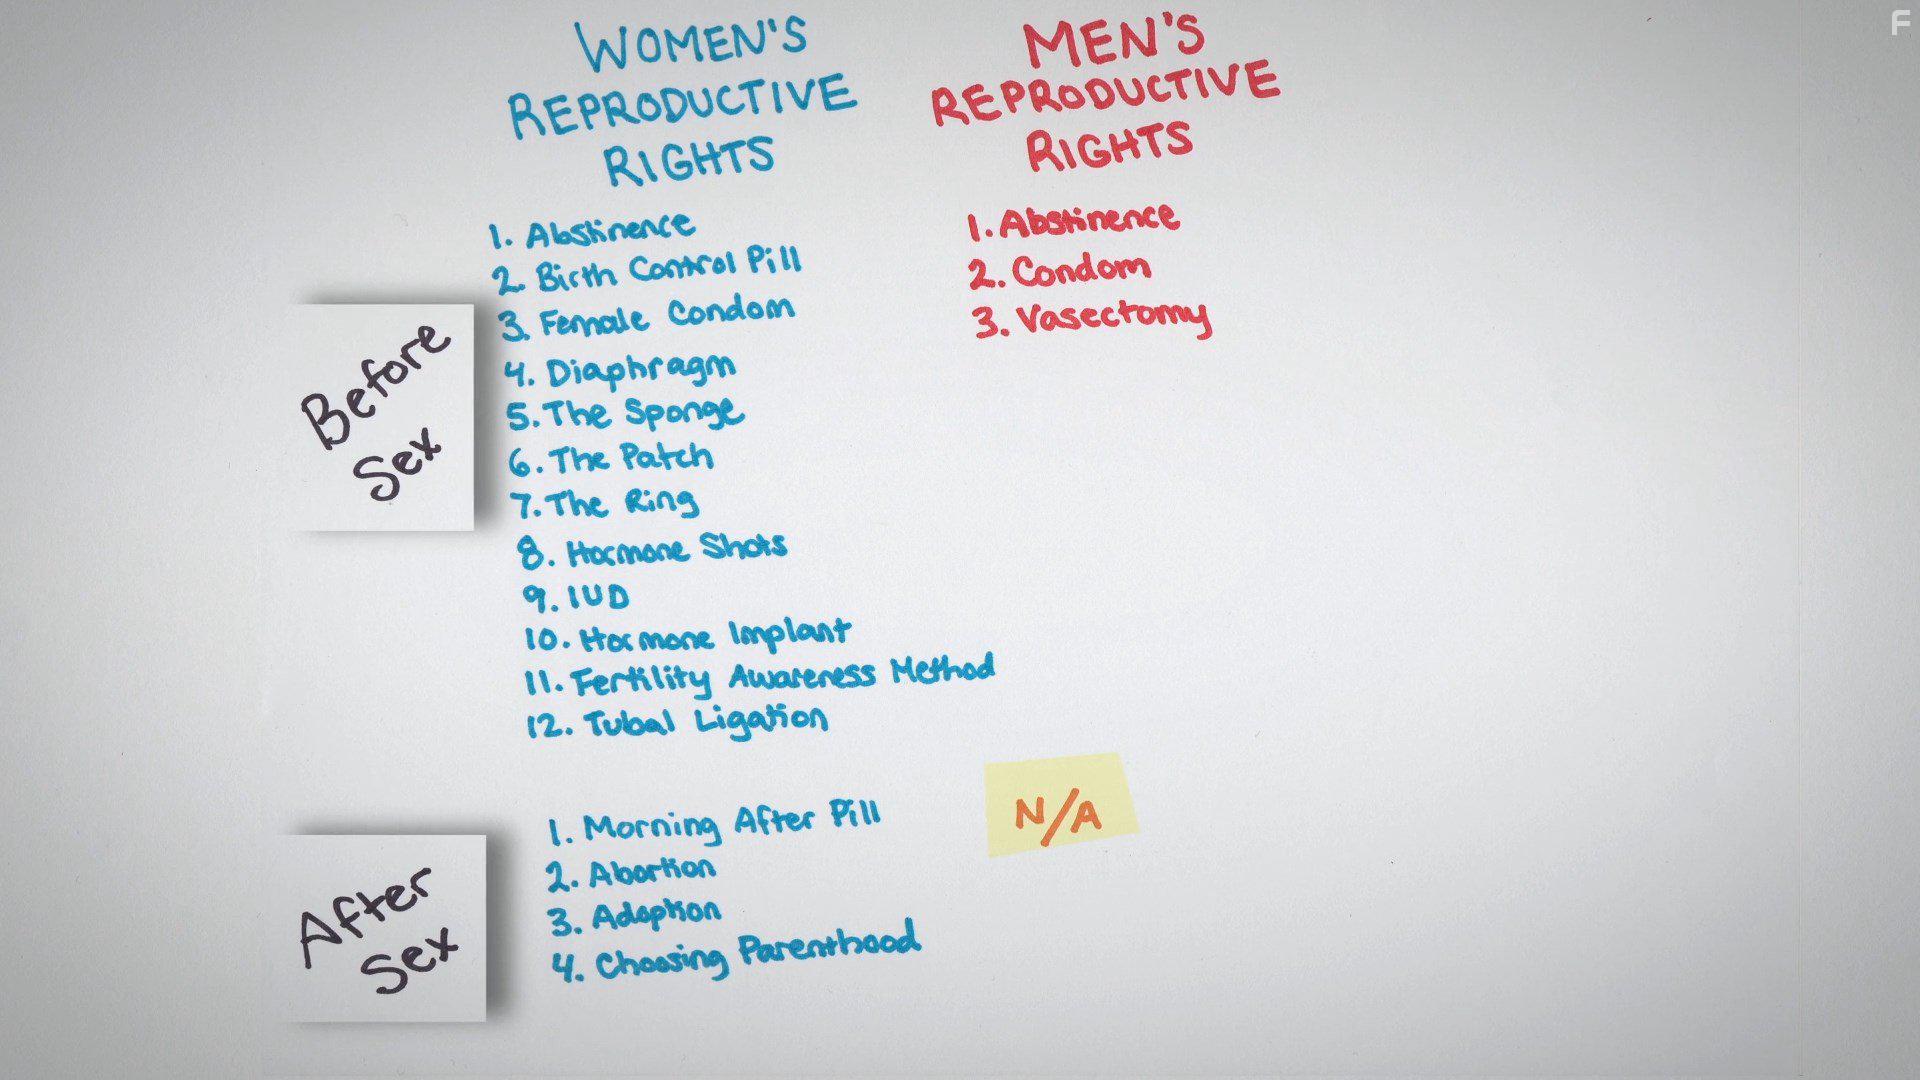 WOMEN'S
REPRODUCTIVE
RIGHTS
1. Abstinence
2. Birth Control Pill
3. Female Condom
4. Diaphragm
5. The Sponge
6. The Patch
7. The Ring
8. Hormone Shots
9. IUD
10. Hormone Implant
11. Fertility Awareness Method
12. Tubal Ligation
MEN'S
REPRODUCTIVE
RIGHTS
1. Abstinence
2. Condom
3. Vasectomy
Before
Sex
1. Morning After Pill
2. Abortion
3. Adoption
4. Choosing Parenthood
N/A
After
Sex
F